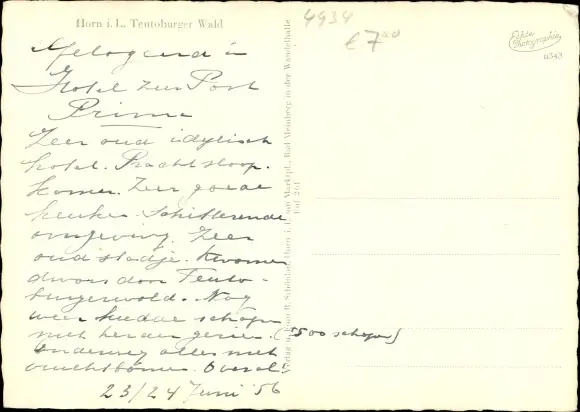 Horn i. L. Teutoburger Wald
4934
€ 7,00
Echte Photographie
11343
Gelogeerd in
Hotel zur Post
Prima
Zeer oud idyllisch
hotel. Pracht slaap.
kamer. Zeer goede
keuken. Schitterende
omgeving. Zeer
oud stadje. Kwamen
dwars door Teuto-
burgerwald. Nog
weer kudde schapen
met herder gezien. (500 schapen)
Onderweg alles met
vruchtbomen. Overal!
23/24 Juni '56
Horn i. L. am Marktpl., Bad Meinberg in der Wandelhalle